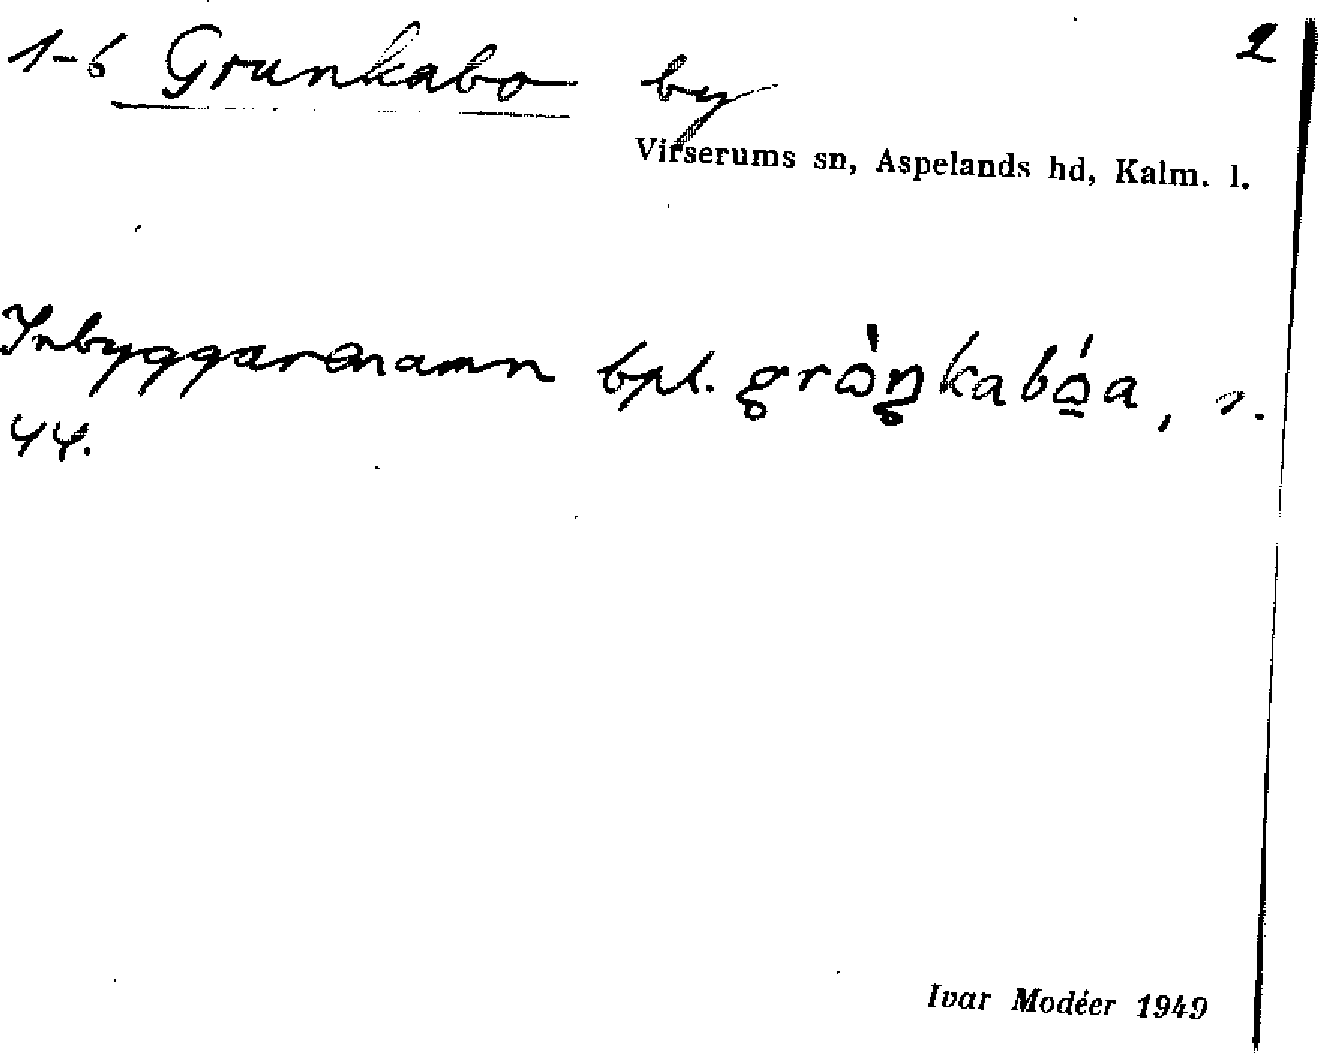 1-6 Grunkabo by 2
Virserums sn, Aspelands hd, Kalm. l.
Inbyggarenamn bpl. grὼŋkabώa, s.
44.
Ivar Modéer 1949